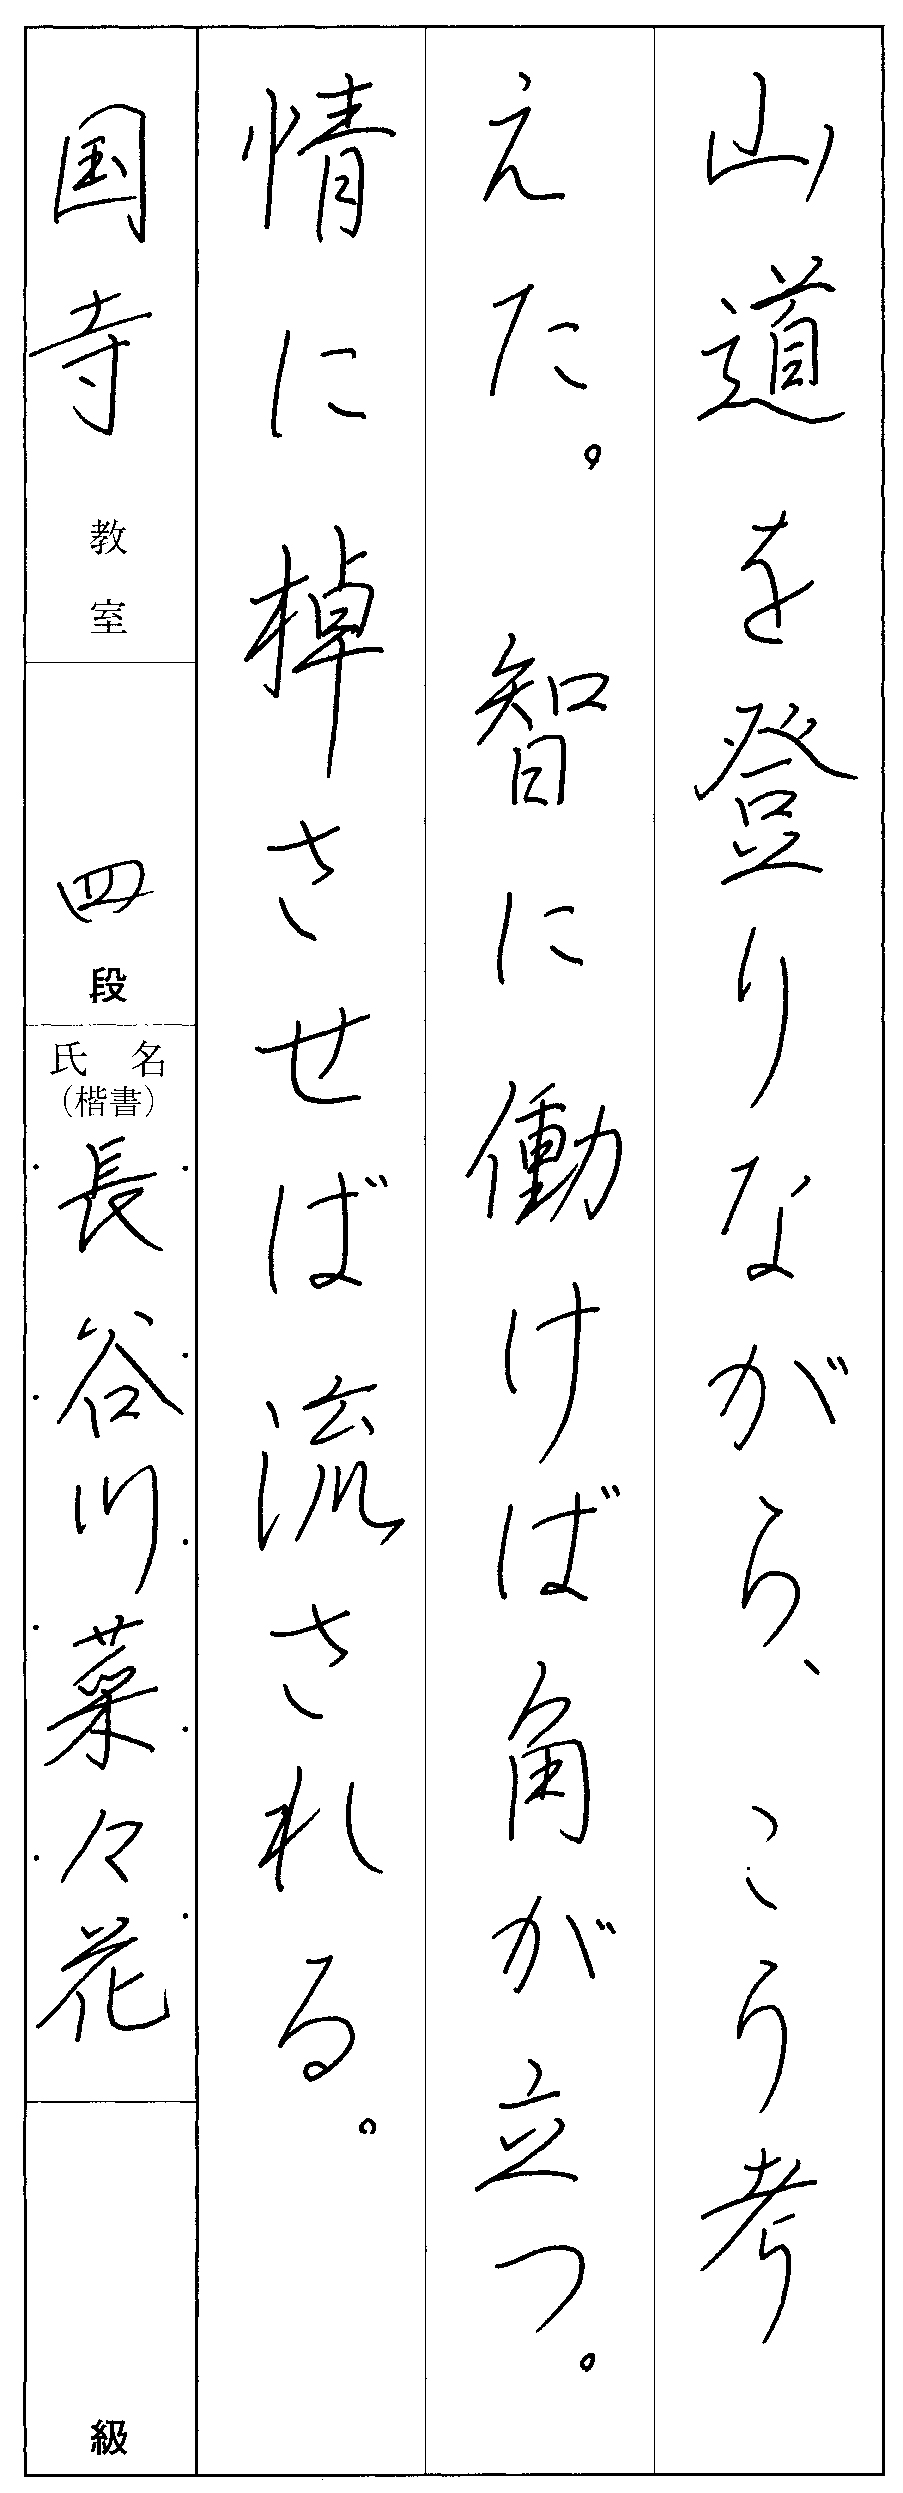 山道を登りながら、こう考
えた。智に働けば角が立つ。
情に棹させば流される。
国寺教室
四段
氏名
（楷書）
長谷川菜々花
級